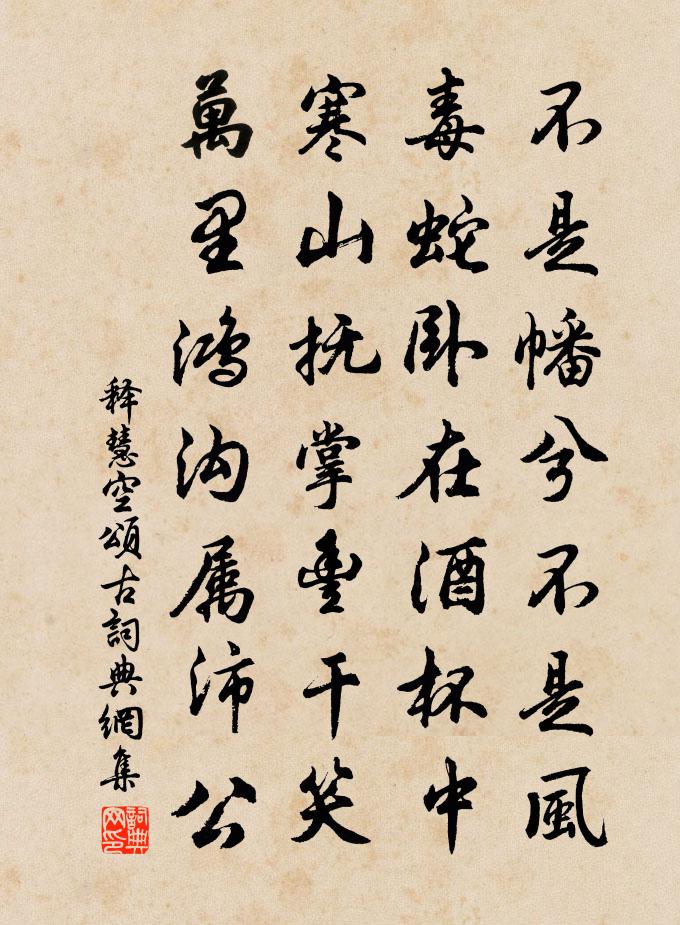 不是幡兮不是風
毒蛇卧在酒杯中
寒山抚掌豊干笑
萬里鴻沟属沛公
释慧空頌古詞典網集
詞典網印